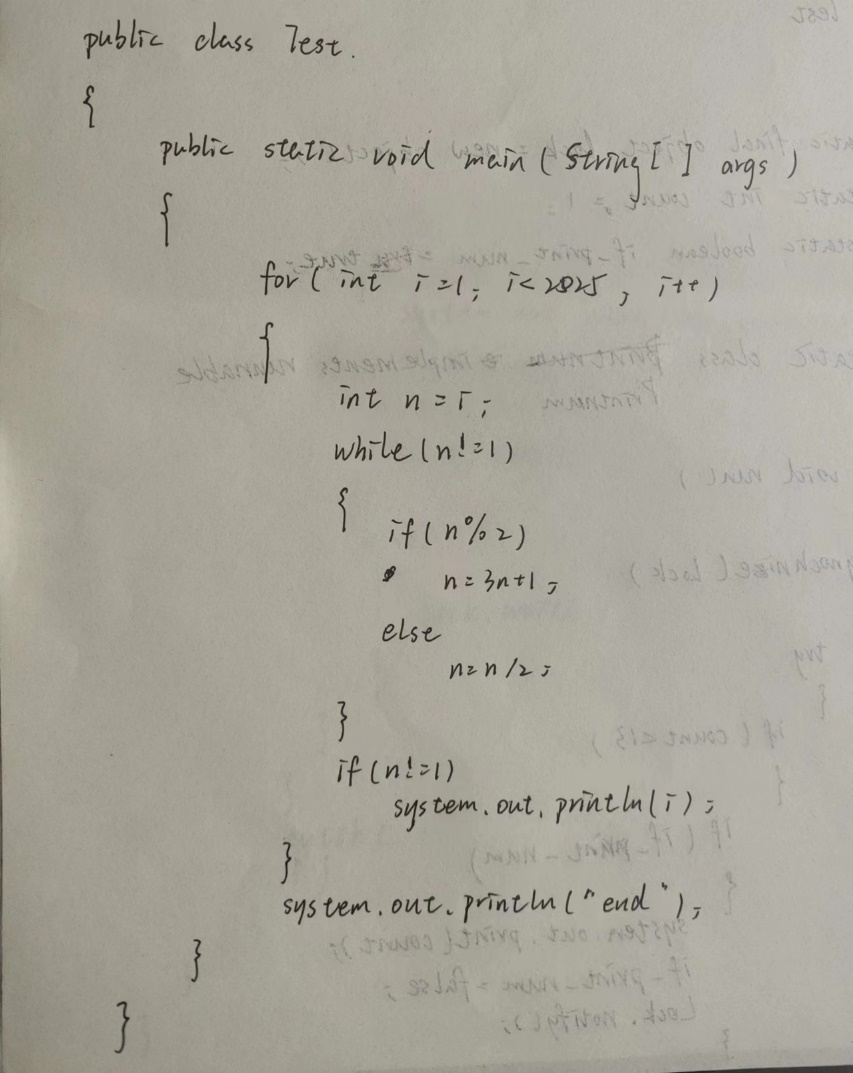 public class Test.
{
public static void main (String[] args)
{
for (int i=1; i<2025, i++)
{
int n=i;
while (n!=1)
{
if (n%2)
n=3n+1;
else
n=n/2;
}
if (n!=1)
system.out.println(i);
}
system.out.println("end");
}
}